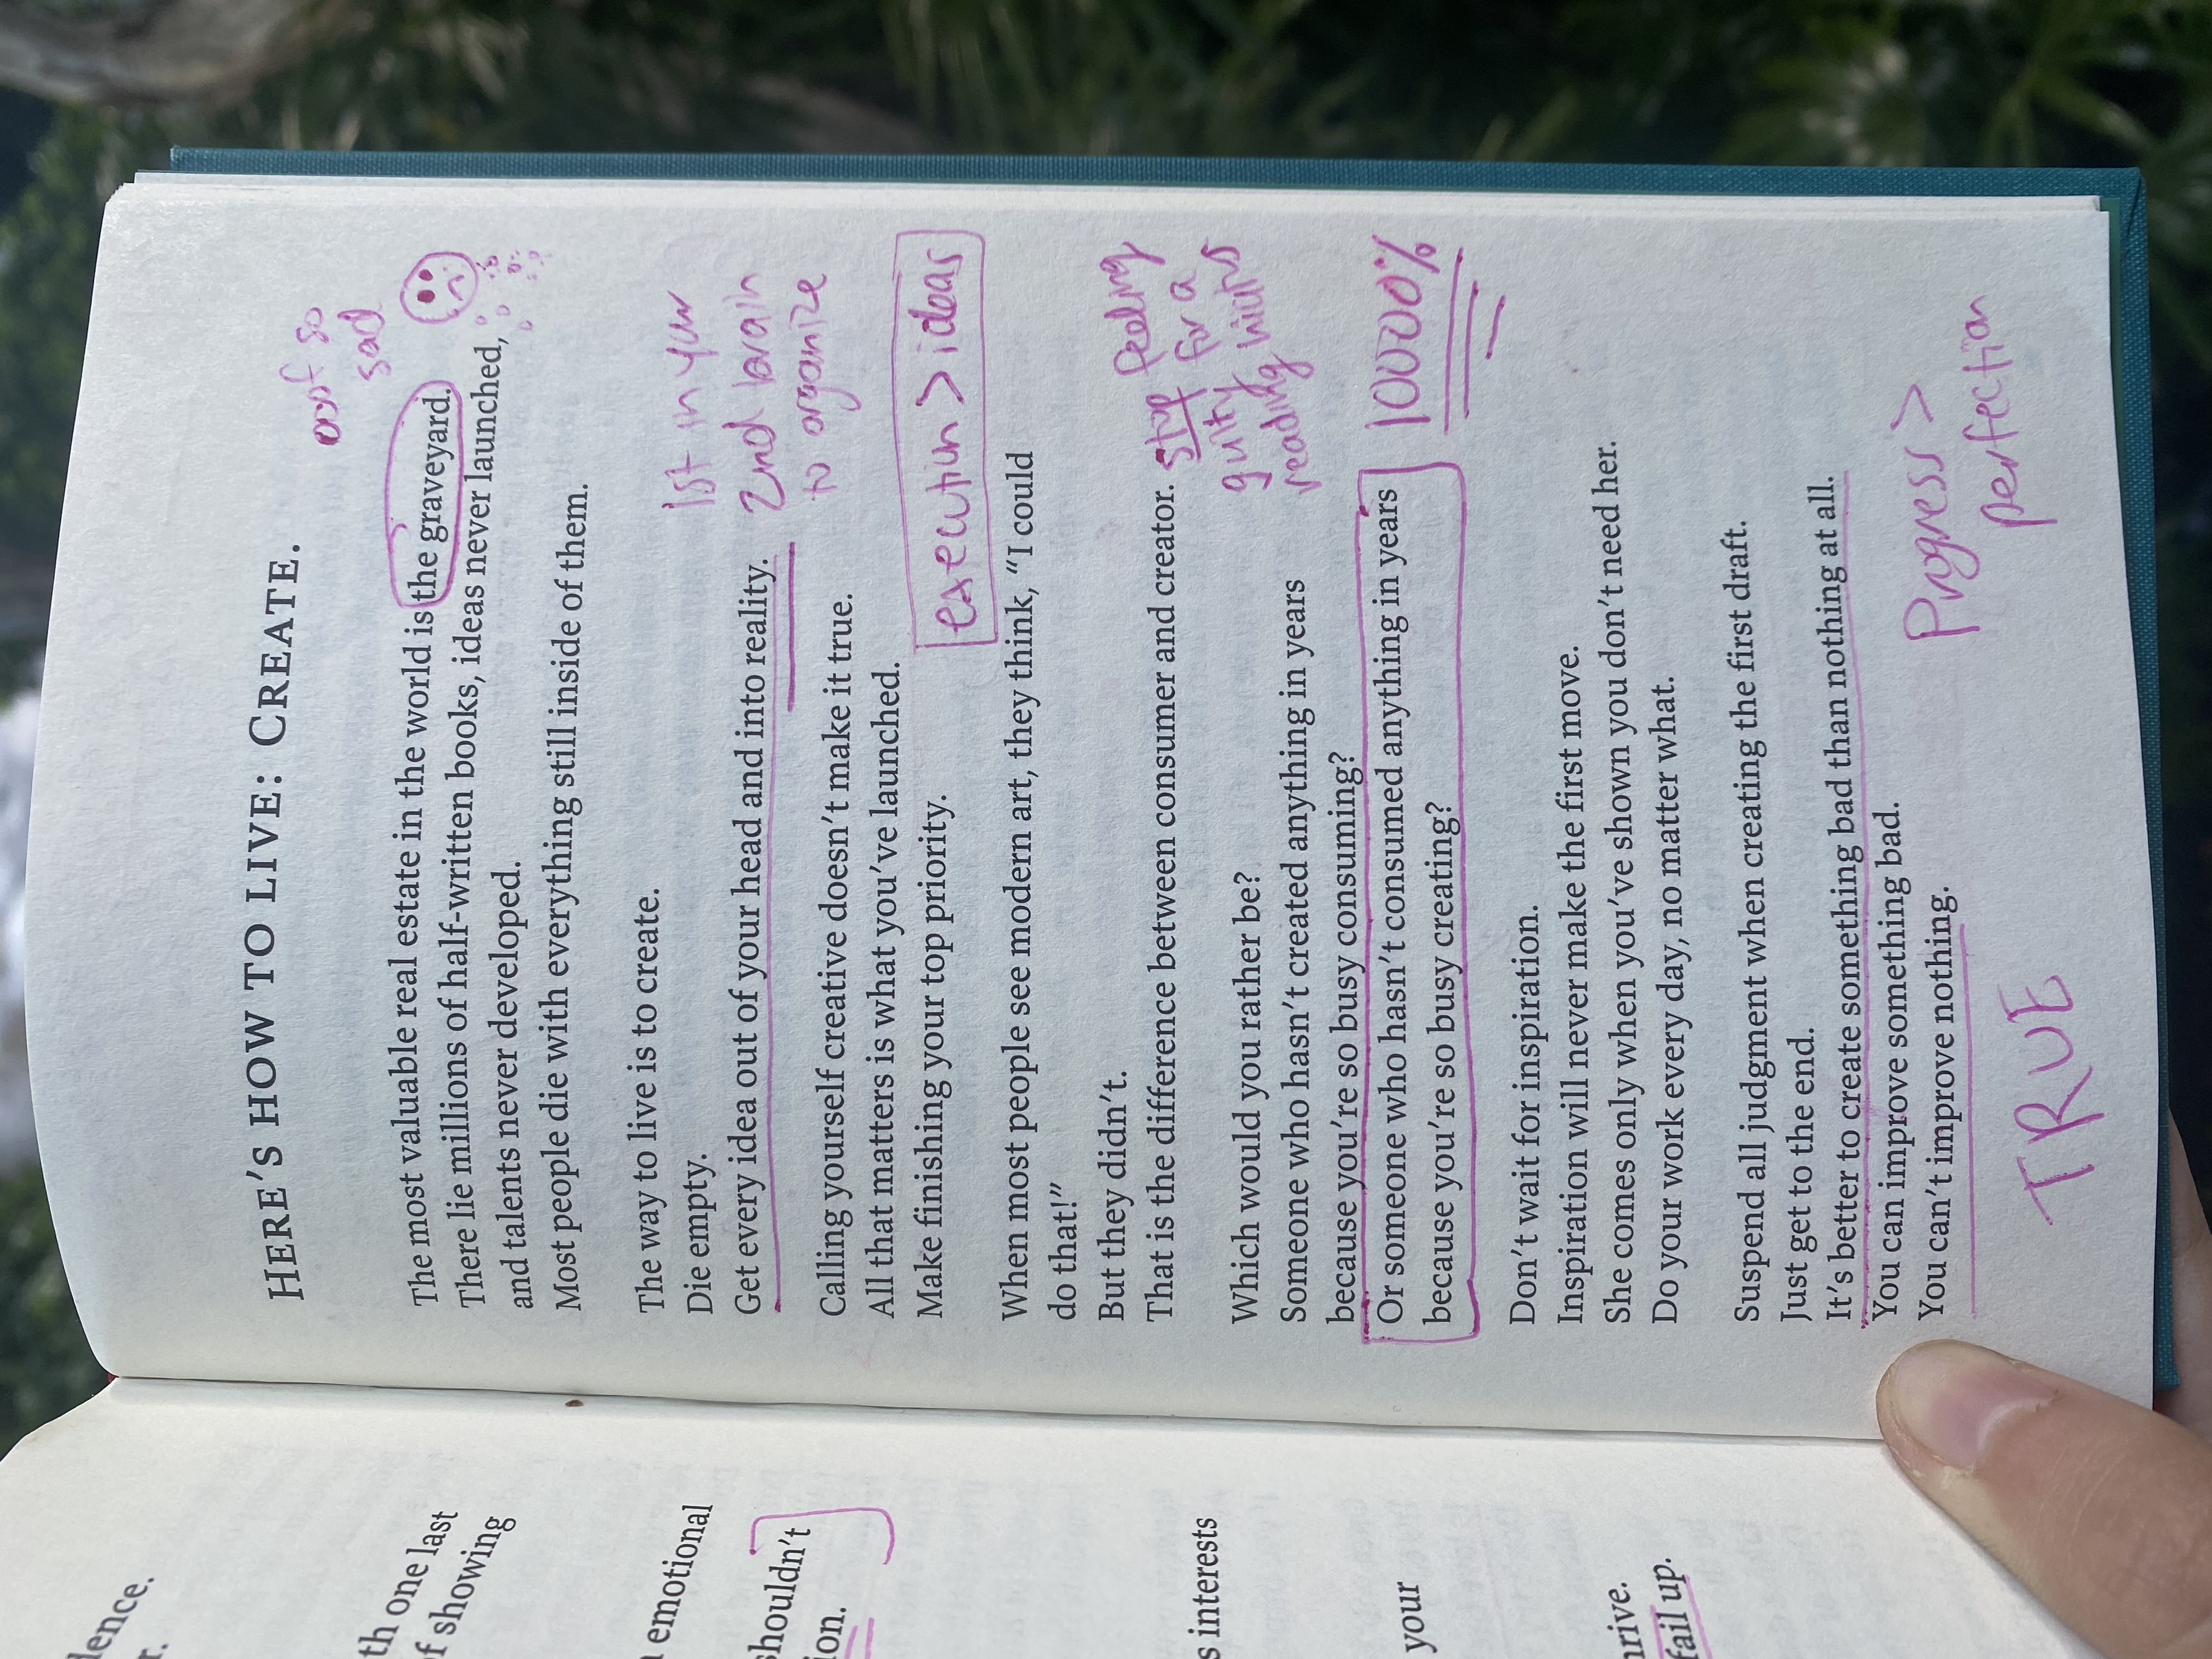 dence.
r.
th one last
of showing
emotional
shouldn't
ion.
s interests
your
hrive.
fail up.
HERE'S HOW TO LIVE: CREATE.
oof so
sad
The most valuable real estate in the world is the graveyard.
There lie millions of half-written books, ideas never launched,
and talents never developed.
Most people die with everything still inside of them.
The way to live is to create.
Die empty.
Get every idea out of your head and into reality.
1st in your
2nd brain
to organize
Calling yourself creative doesn't make it true.
All that matters is what you've launched.
Make finishing your top priority.
execution > ideas
When most people see modern art, they think, “I could
do that!”
But they didn't.
That is the difference between consumer and creator.
stop feeling
guilty for a
reading
Which would you rather be?
Someone who hasn't created anything in years
because you're so busy consuming?
Or someone who hasn't consumed anything in years
because you're so busy creating?
10000%
Don't wait for inspiration.
Inspiration will never make the first move.
She comes only when you've shown you don't need her.
Do your work every day, no matter what.
Suspend all judgment when creating the first draft.
Just get to the end.
It's better to create something bad than nothing at all.
You can improve something bad.
You can't improve nothing.
Progress >
perfection
TRUE